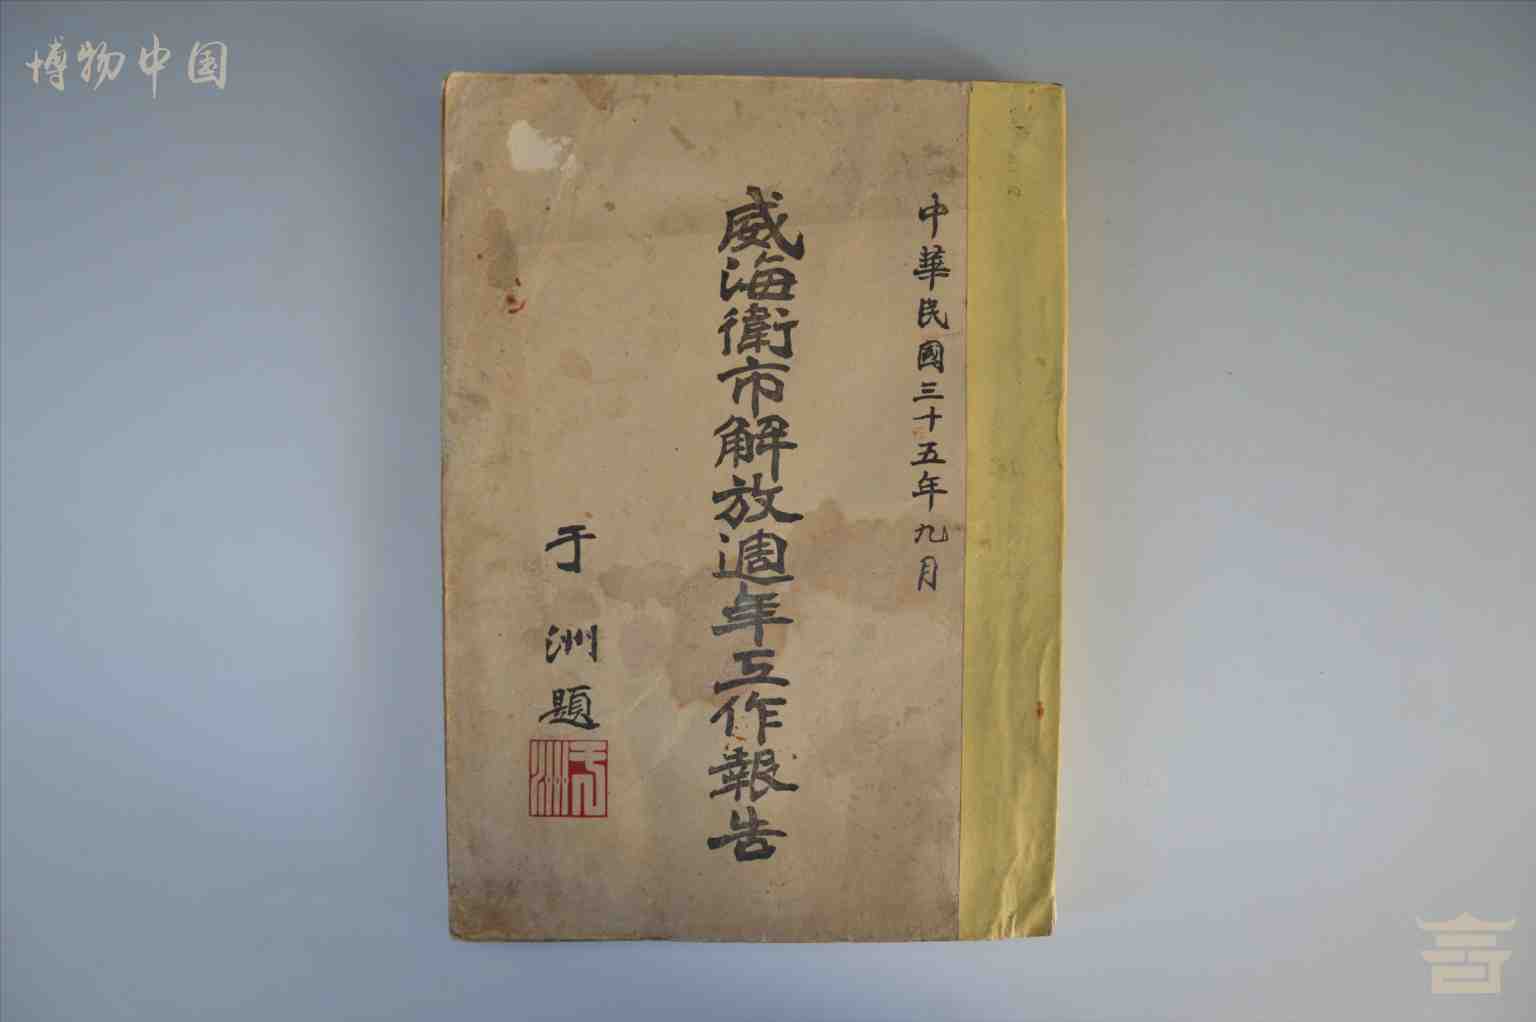 博物中国
中華民國三十五年九月
威海衛市解放週年工作報告
于洲題
于洲